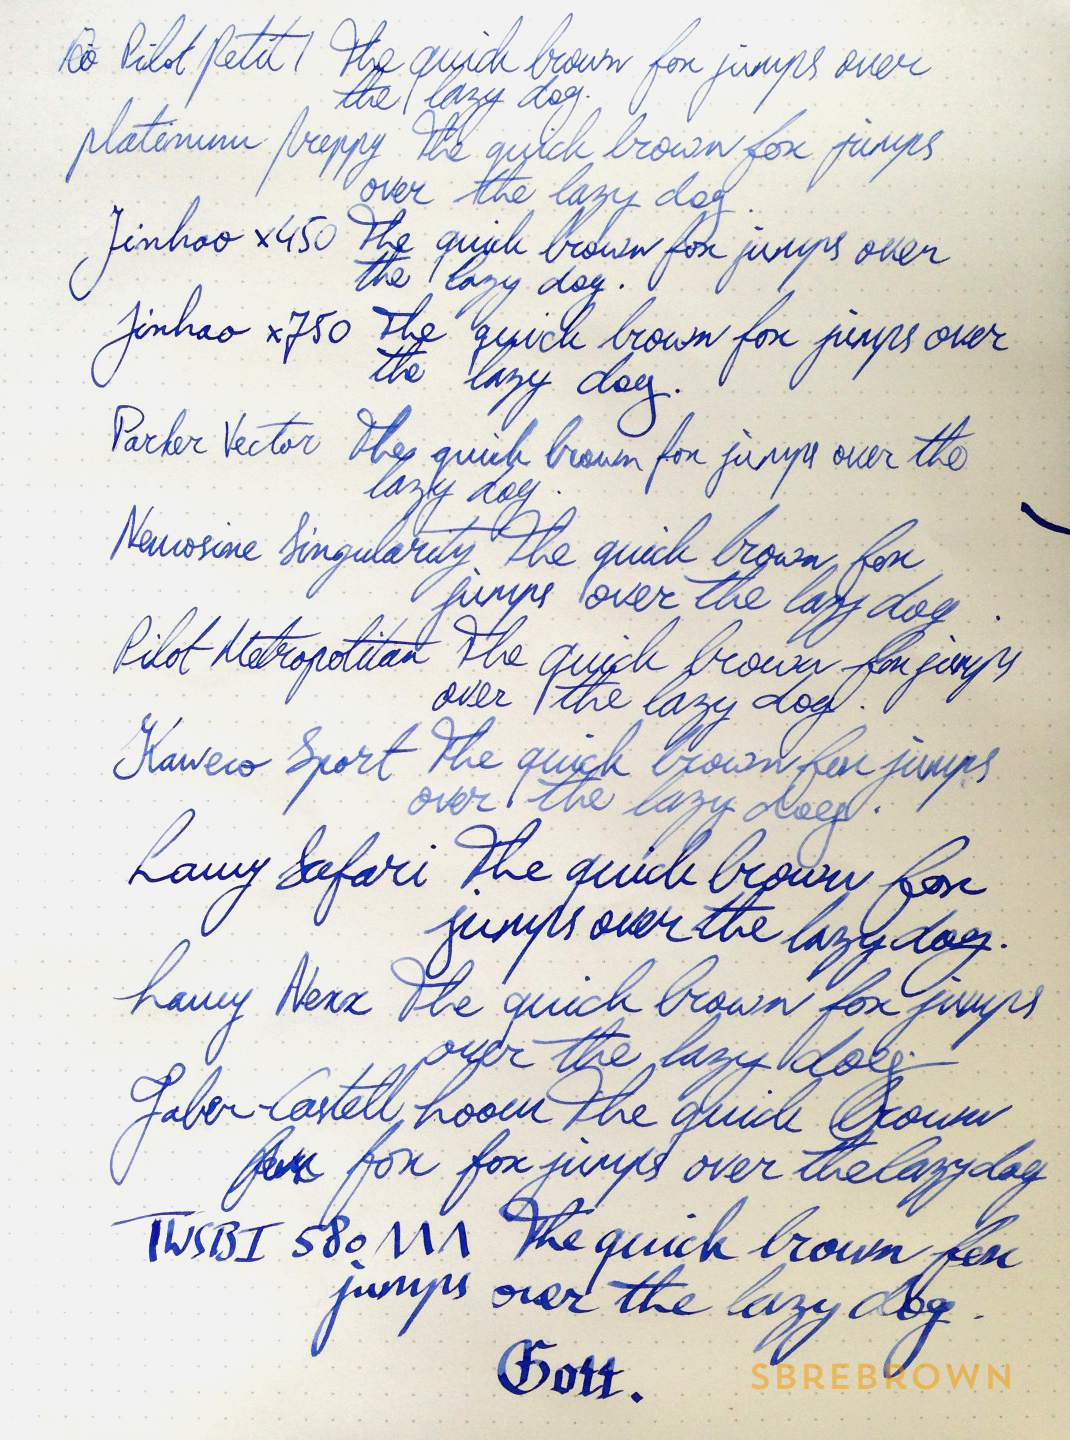 Pilot Petit 1 The quick brown fox jumps over
the lazy dog.
platinum preppy The quick brown fox jumps
over the lazy dog.
Jinhao x450 The quick brown fox jumps over
the lazy dog.
Jinhao x750 The quick brown fox jumps over
the lazy dog.
Parker Vector The quick brown fox jumps over the
lazy dog.
Nemosine Singularity The quick brown fox
jumps over the lazy dog.
Pilot Metropolitan The quick brown fox jumps
over the lazy dog.
Kaweco Sport The quick brown fox jumps
over the lazy dog.
Lamy Safari The quick brown fox
jumps over the lazy dog.
Lamy Nexx The quick brown fox jumps
over the lazy dog.
Faber-Castell Loom The quick brown
fox fox jumps over the lazy dog
TWSBI 580 The quick brown fox
jumps over the lazy dog.
Gott.
SBREBROWN